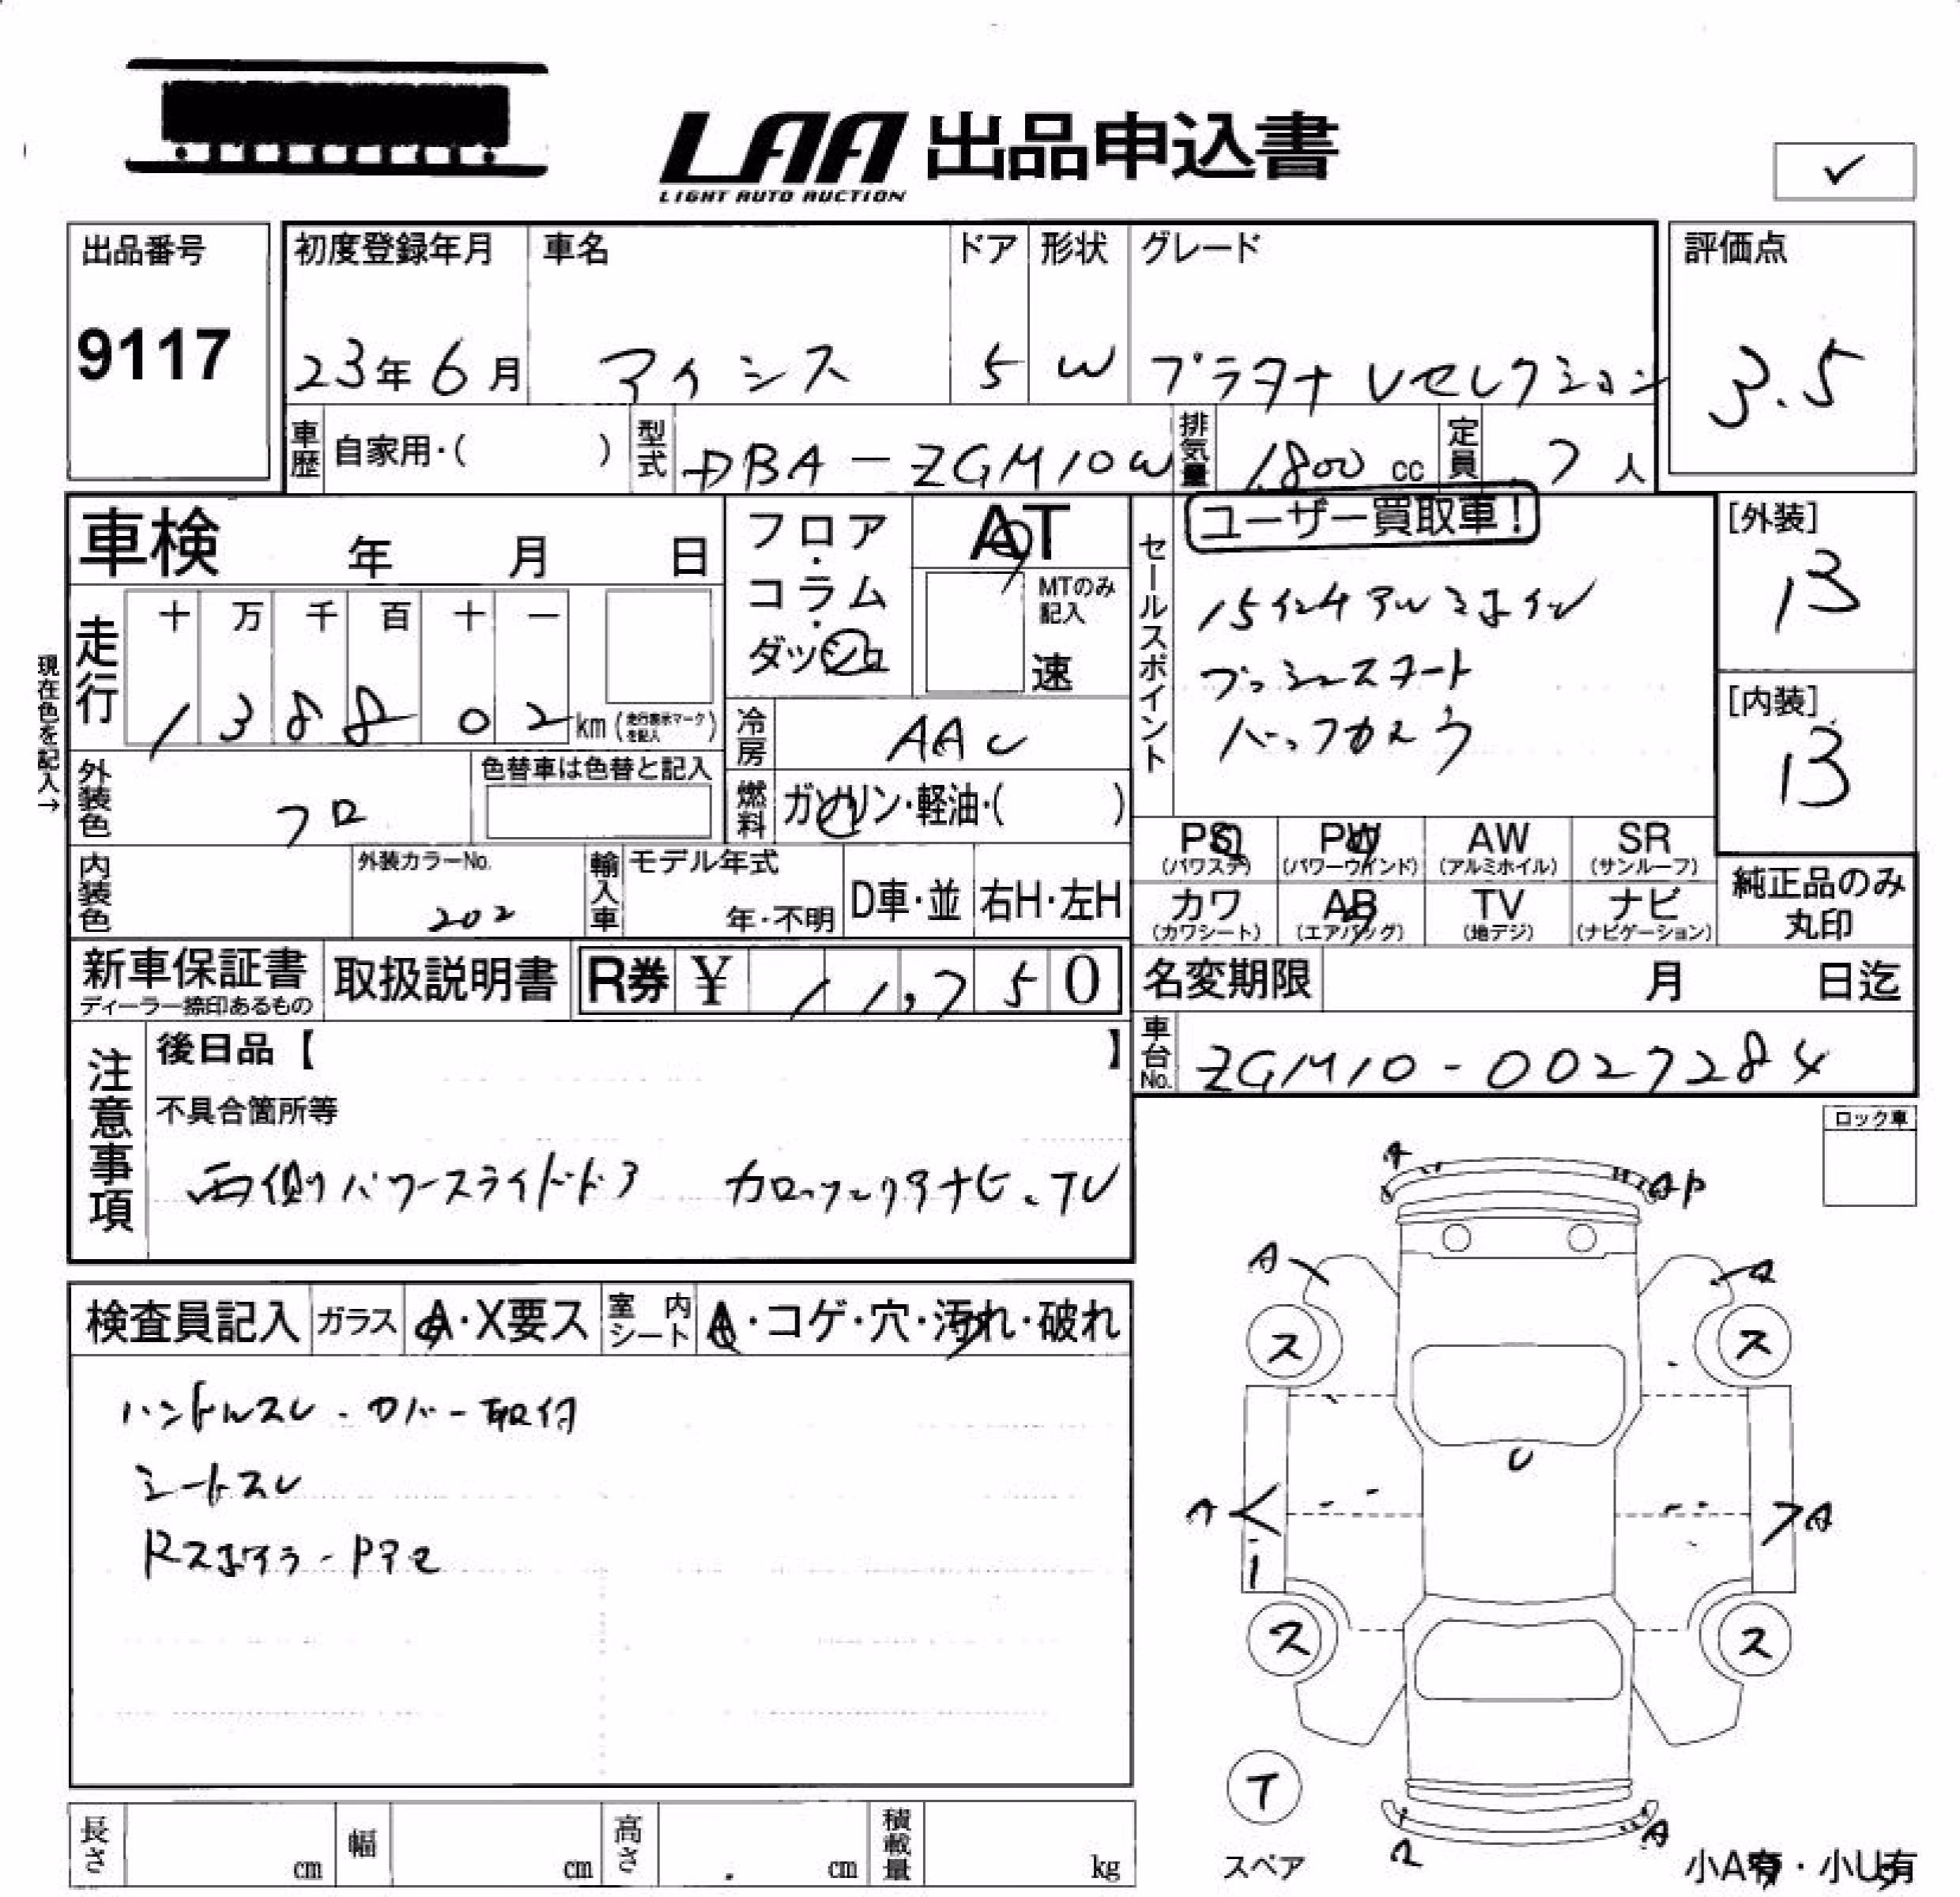 LAA 出品申込書
LIGHT AUTO AUCTION
✓
出品番号
9117
初度登録年月
23年6月
車名
アイシス
ドア
5
形状
W
グレード
プラタナ Vセレクション
評価点
3.5
車歴 自家用・( )
型式 DBA-ZGM10W
排気量 1,800 cc
定員 7人
車検 年 月 日
現在色を記入→
走行
十 万 千 百 十 一
1 3 8 8 0 2 km (走行表示マークを記入)
フロア・コラム・ダッシュ
AT
MTのみ記入
速
冷房 AAC
燃料 ガソリン・軽油・( )
外装色 クロ
色替車は色替と記入
内装色
外装カラーNo.
202
輸入車
モデル年式
年・不明
D車・並
右H・左H
セールスポイント
ユーザー買取車!
15インチアルミホイル
プッシュスタート
バックカメラ
[外装]
13
[内装]
13
PS (パワステ)
PW (パワーウインド)
AW (アルミホイル)
SR (サンルーフ)
カワ (カワシート)
AB (エアバッグ)
TV (地デジ)
ナビ (ナビゲーション)
純正品のみ丸印
新車保証書
ディーラー捺印あるもの
取扱説明書
R券 ¥ 11,750
名変期限 月 日迄
車台No. ZGM10-0027284
注意事項
後日品【 】
不具合箇所等
両側パワースライドドア カロッツェリアナビ、TV
ロック車
検査員記入
ガラス A・X要ス
室内シート A・コゲ・穴・汚れ・破れ
ハンドルスレ・カバー取付
シートスレ
A
A P
A
A
ス
ス
U
A
A
ス
ス
T
スペア
A
小A有・小U有
長さ cm
幅 cm
高さ cm
積載量 kg